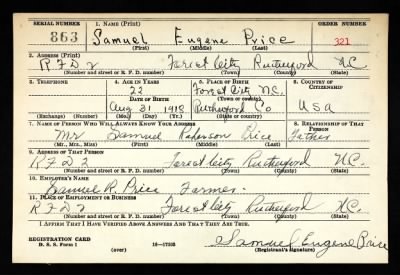 SERIAL NUMBER 1. NAME (Print) ORDER NUMBER
863 Samuel Eugene Price 321
(First) (Middle) (Last)
2. ADDRESS (Print)
RFD 2 Forest City Rutherford N.C.
(Number and street or R. F. D. number) (Town) (County) (State)
3. TELEPHONE 4. AGE IN YEARS 5. PLACE OF BIRTH 6. COUNTRY OF CITIZENSHIP
22 Forest City N.C.
DATE OF BIRTH (Town or county)
Aug 31 1918 Rutherford Co USA
(Exchange) (Number) (Mo.) (Day) (Yr.) (State or country)
7. NAME OF PERSON WHO WILL ALWAYS KNOW YOUR ADDRESS 8. RELATIONSHIP OF THAT PERSON
Mr Samuel Price Father
(Mr., Mrs., Miss) (First) (Middle) (Last)
9. ADDRESS OF THAT PERSON
RFD 2 Forest City Rutherford N.C.
(Number and street or R. F. D. number) (Town) (County) (State)
10. EMPLOYER'S NAME
Samuel R. Price Farmer
11. PLACE OF EMPLOYMENT OR BUSINESS
RFD 2 Forest City Rutherford N.C.
(Number and street or R. F. D. number) (Town) (County) (State)
I AFFIRM THAT I HAVE VERIFIED ABOVE ANSWERS AND THAT THEY ARE TRUE.
REGISTRATION CARD
D. S. S. Form 1 (over) 16—17105 Samuel Eugene Price
(Registrant's signature)